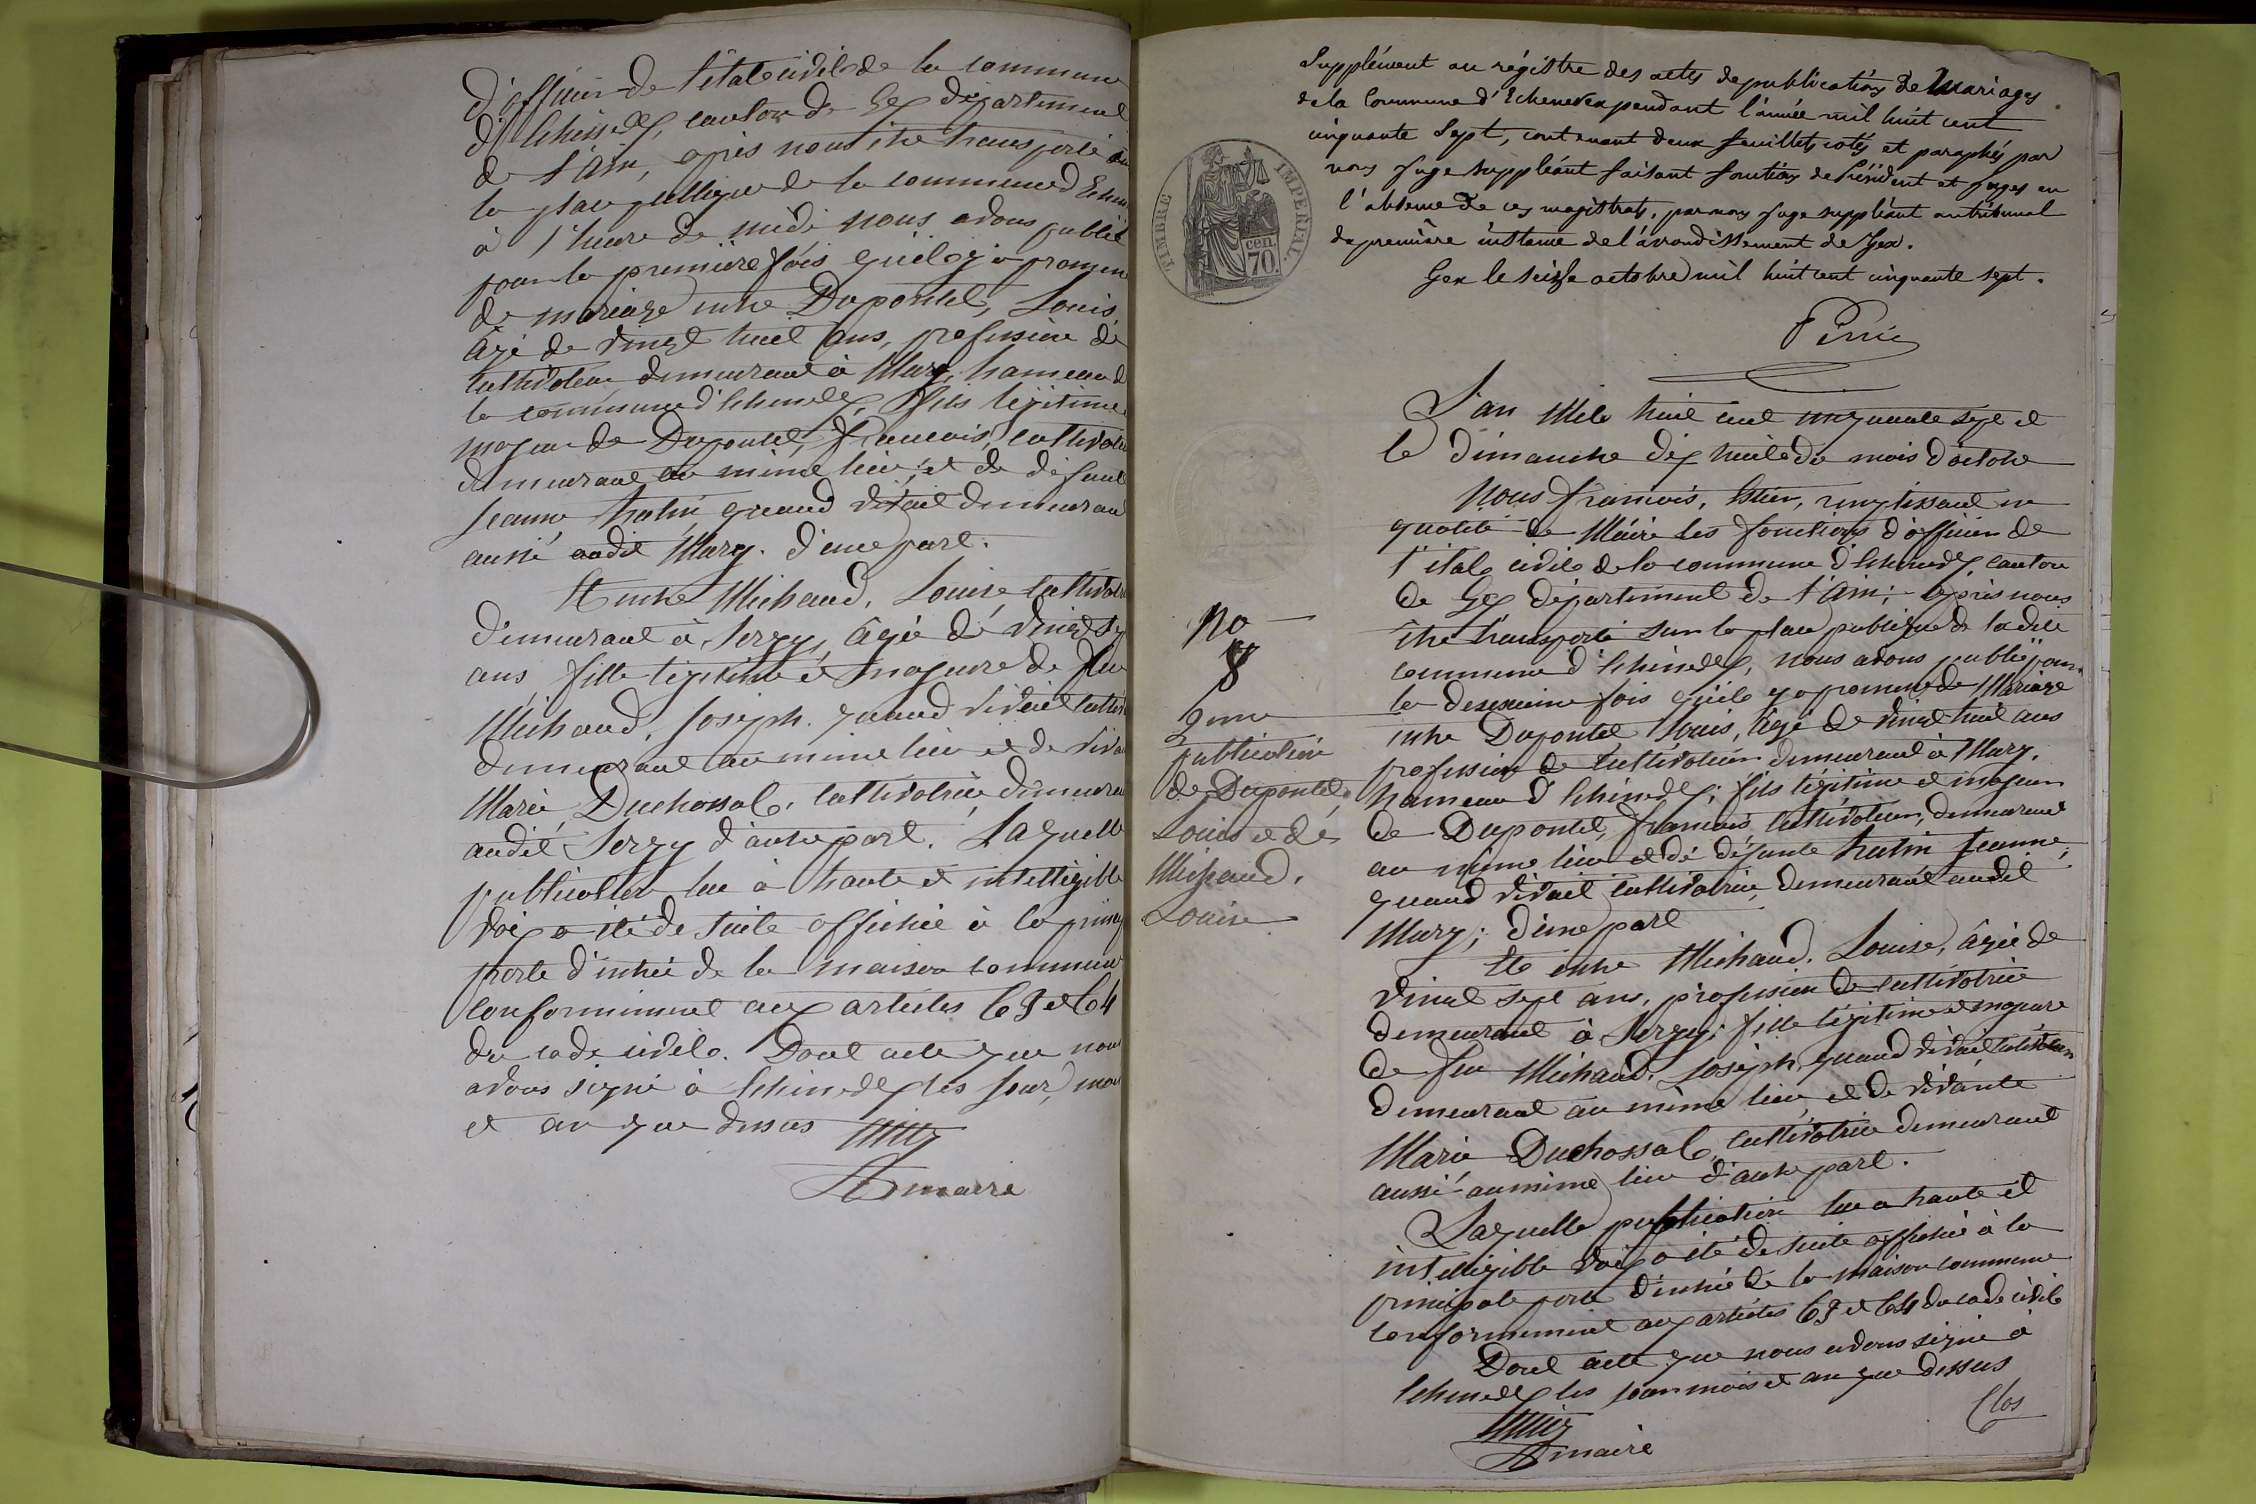 d'officier de l'état civil de la commune
d'Echenevex, canton de Gex département
de l'Ain, après nous être transporté sur
la place publique de la commune d'Echen
à l'heure de midi nous avons publié
pour la première fois qu'il y a promesse
de mariage entre Dupontel, Louis,
âgé de vingt huit ans, profession de
cultivateur demeurant à Mury, hameau de
la commune d'Echenevex, fils légitime
majeur de Dupontel, francois, cultivateu
demeurant au même lieu; et de défunte
Jeanne hutin quand vivait demeurant
aussi audit Mury. d'une part.
Et entre Michaud, Louise, cultivatri
demeurant à Sergy, âgée de vingt se
ans, fille légitime et majeure de feu
Michaud, Joseph. quand vivait cultiv
demeurant au même lieu et de viva
Marie Duchossal, cultivatrice demeura
audit Sergy d'autre part. Laquelle
publication lue à haute et intelligible
voix a été de suite affichée à la princip
porte d'entrée de la maison commune
conformément aux articles 63 et 64
du code civil. Dont acte que nous
avons signé à Echenevex les jour, mois
et an que dessus
maire
Supplément au régistre des actes de publications de Mariages
de la Commune d'Echenevex pendant l'année mil huit cent
cinquante Sept, contenant deux feuillets cotés et paraphés par
nous Juge suppléant faisant fonctions de Président et Juges en
l'absence de ces magistrats, par nous Juge suppléant au tribunal
de première instance de l'arrondissement de Gex.
Gex le seize octobre mil huit cent cinquante sept.
TIMBRE IMPERIAL.
cen.
70.
L'an Mile huit cent cinquante sept et
le dimanche dix huit du mois d'octobre
Nous francois, remplissant en
qualité de Maire les fonctions d'officier de
l'état civil de la commune d'Echenevex, canton
de Gex département de l'Ain; après nous
être transporté sur la place publique de la dite
commune d'Echenevex, nous avons publié pour
la deuxième fois qu'il y a promesse de Mariage
entre Dupontel Louis, âgé de vingt huit ans
profession de cultivateur demeurant à Mury,
hameau d'Echenevex; fils légitime et majeur
de Dupontel, francois, cultivateur, demeurant
au même lieu et de défunte hutin Jeanne,
quand vivait cultivatrice, demeurant audit
Mury; d'une part
Et entre Michaud. Louise, âgée de
vingt sept ans, profession de cultivatrice
demeurant à Sergy; fille légitime et majeure
de feu Michaud, Joseph quand vivait cultivateur
demeurant au même lieu et de vivante
Marie Duchossal, cultivatrice demeurant
aussi au même lieu d'autre part.
Laquelle publication lue a haute et
intelligible voix a été de suite affichée à la
principale porte d'entrée de la maison commune
conformément aux articles 63 et 64 du code civil
Dont acte que nous avons signé à
Echenevex les jour mois et an que dessus
Clos
maire
No
8
2eme
publication
de Dupontel,
Louis et de
Michaud.
Louise